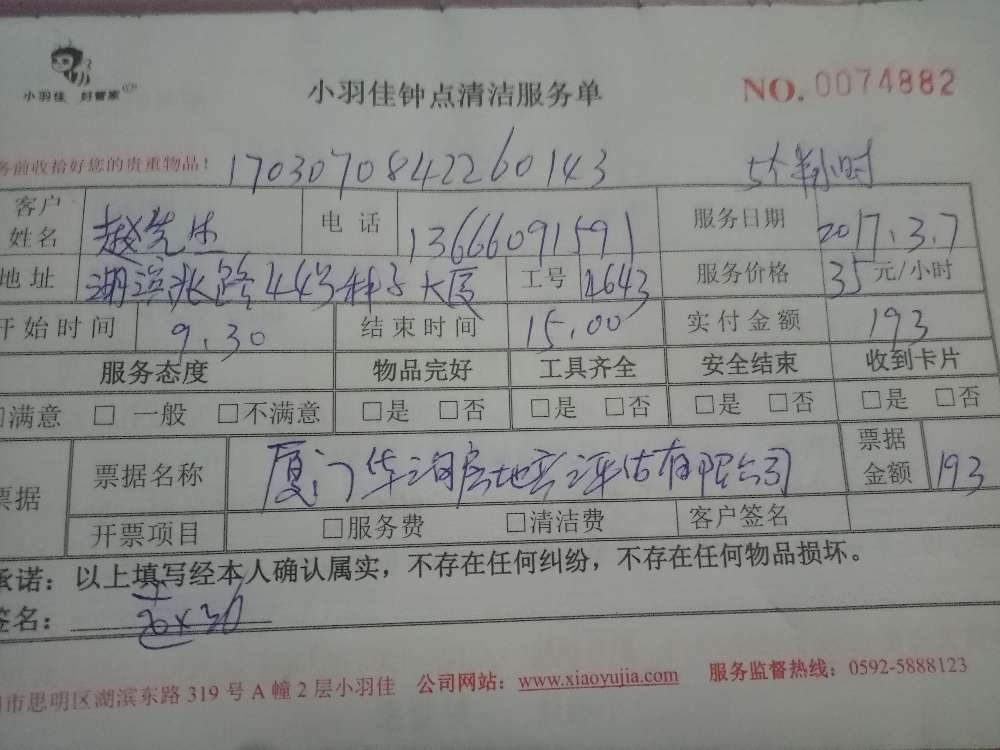 小羽佳 好管家
小羽佳钟点清洁服务单
NO. 0074882
务前收拾好您的贵重物品!
1703070842260143
5个半小时
客户姓名 赵先生 电话 13666091591 服务日期 2017.3.7
地址 湖滨北路44号 大厦 工号 4643 服务价格 35元/小时
开始时间 9.30 结束时间 15.00 实付金额 193
服务态度 物品完好 工具齐全 安全结束 收到卡片
□满意 □ 一般 □不满意 □是 □否 □是 □否 □是 □否 □是 □否
票据 票据名称 厦门华 房地产评估有限公司 票据金额 193
开票项目 □服务费 □清洁费 客户签名
承诺:以上填写经本人确认属实,不存在任何纠纷,不存在任何物品损坏。
签名:
市思明区湖滨东路 319 号 A 幢 2 层小羽佳 公司网站:www.xiaoyujia.com 服务监督热线:0592-5888123